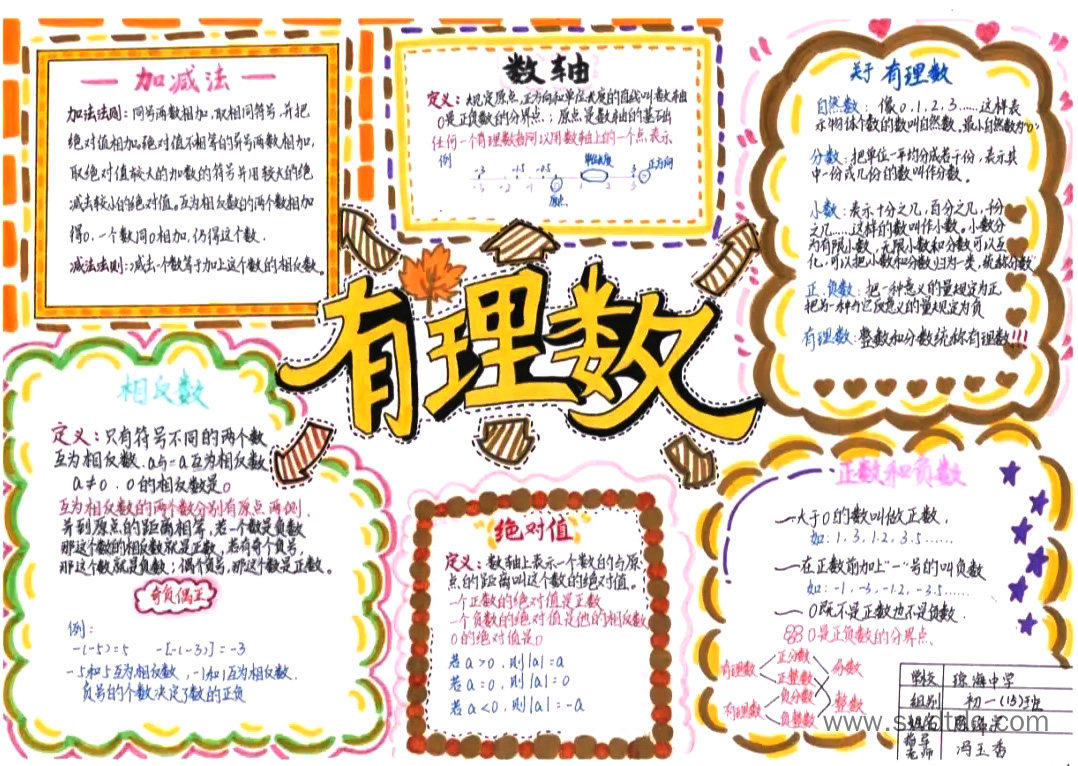 — 加减法 —
加法法则:同号两数相加,取相同符号,并把
绝对值相加,绝对值不相等的异号两数相加,
取绝对值较大的加数的符号并用较大的绝
减去较小的绝对值。互为相反数的两个数相加
得0.一个数同0相加,仍得这个数.
减法法则:减去一个数等于加上这个数的相反数。
数轴
定义:规定原点,正方向和单位长度的直线叫数轴
0是正负数的分界点;原点是数轴的基础
任何一个有理数皆可以用数轴上的一个点表示
例
单位长度
正方向
-3 -2 -1 0 1 2 3
原点
关于有理数
自然数:像0.1.2.3……这样表
示物体个数的数叫自然数.最小自然数为"0"
分数:把单位一平均分成若干份,表示其
中一份或几份的数叫作分数。
小数:表示十分之几,百分之几,千分
之几……这样的数叫作小数。小数分
为有限小数,无限小数和分数可以互
化,可以把小数和分数归为一类,统称分数
正.负数:把一种意义的量规定为正
把另一种与它反意义的量规定为负
有理数:整数和分数统称有理数!!!
有理数
相反数
定义:只有符号不同的两个数
互为相反数.a与-a互为相反数
a≠0.0的相反数是0
互为相反数的两个数分别有原点两侧.
并到原点的距离相等,若一个数是负数
那这个数的相反数就是正数,若有奇个负号,
那这个数就是负数;偶个负号,那这个数是正数。
奇负偶正
例:
-(-5)=5 -[-(-3)]=-3
-5和5互为相反数,-1和1互为相反数.
负号的个数决定了数的正负
绝对值
定义:数轴上表示一个数的与原
点的距离叫这个数的绝对值。
一个正数的绝对值是正数
一个负数的绝对值是他的相反数
0的绝对值是0
若a>0,则|a|=a
若a=0,则|a|=0
若a<0,则|a|=-a
正数和负数
一大于0的数叫做正数.
如:1.3.1.2.3.5……
一在正数前加上"-"号的叫负数
如:-1,-3,-1.2,-3.5……
一0既不是正数也不是负数.
0是正负数的分界点.
有理数 正分数 分数
正整数
有理数 负分数 整数
负整数
学校 琼海中学
组别 初一(13)班
姓名
指导老师 冯玉香